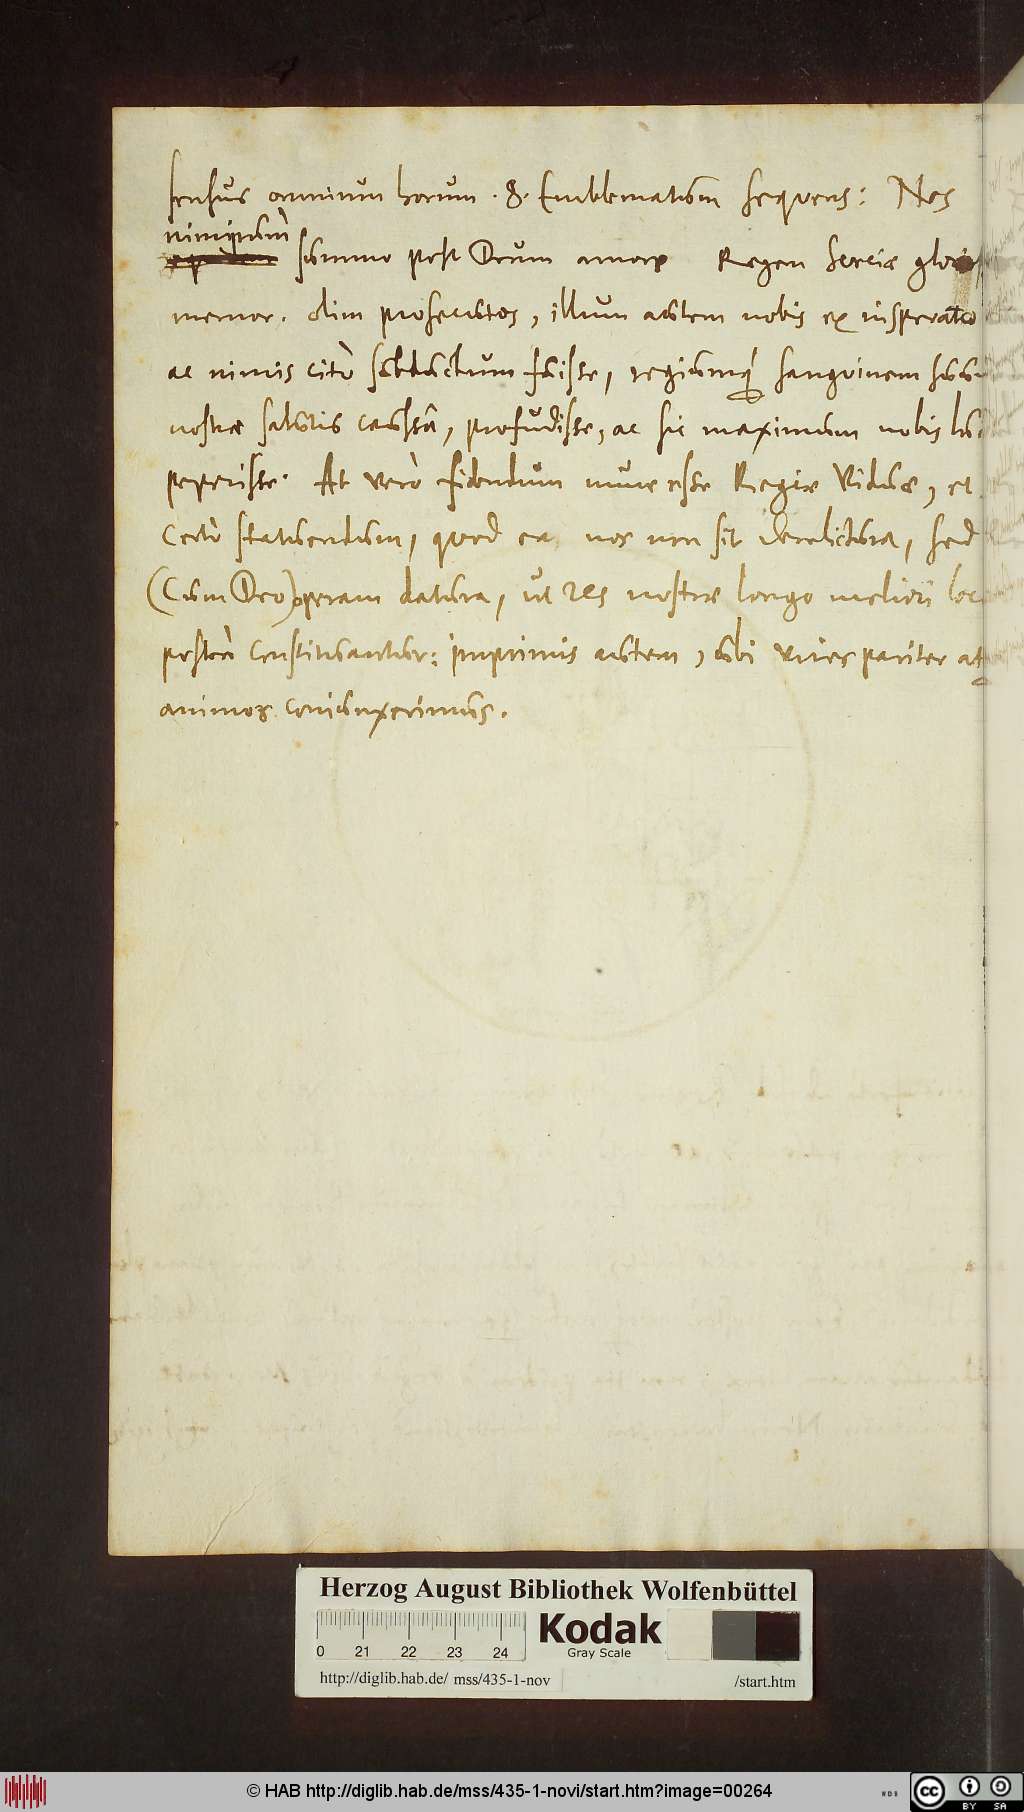 sensus omnium horum .8. Emblematum sequens: Nos
nimirum
summo post Deum amore Regem Sveciæ glorios
memor. olim prosecutos, illum autem nobis ex insperato
ac nimis citò subductum fuisse, regiumq́ sanguinem suum
nostræ salutis caussâ, profudisse, ac sic maximum nobis
peperisse. At verò fidendum nunc esse Regiæ Viduæ, et
certò statuendum, quod ea nos non sit derelictura, sed
(Cum Deo) operam datura, ut res nostræ longo meliori loc
posteà constituantur: imprimis autem, ubi vires pariter atq
animos coniunxerimus.
Herzog August Bibliothek Wolfenbüttel
0 21 22 23 24
Kodak
Gray Scale
http://diglib.hab.de/ mss/435-1-nov
/start.htm
© HAB http://diglib.hab.de/mss/435-1-novi/start.htm?image=00264
WDB
cc BY SA